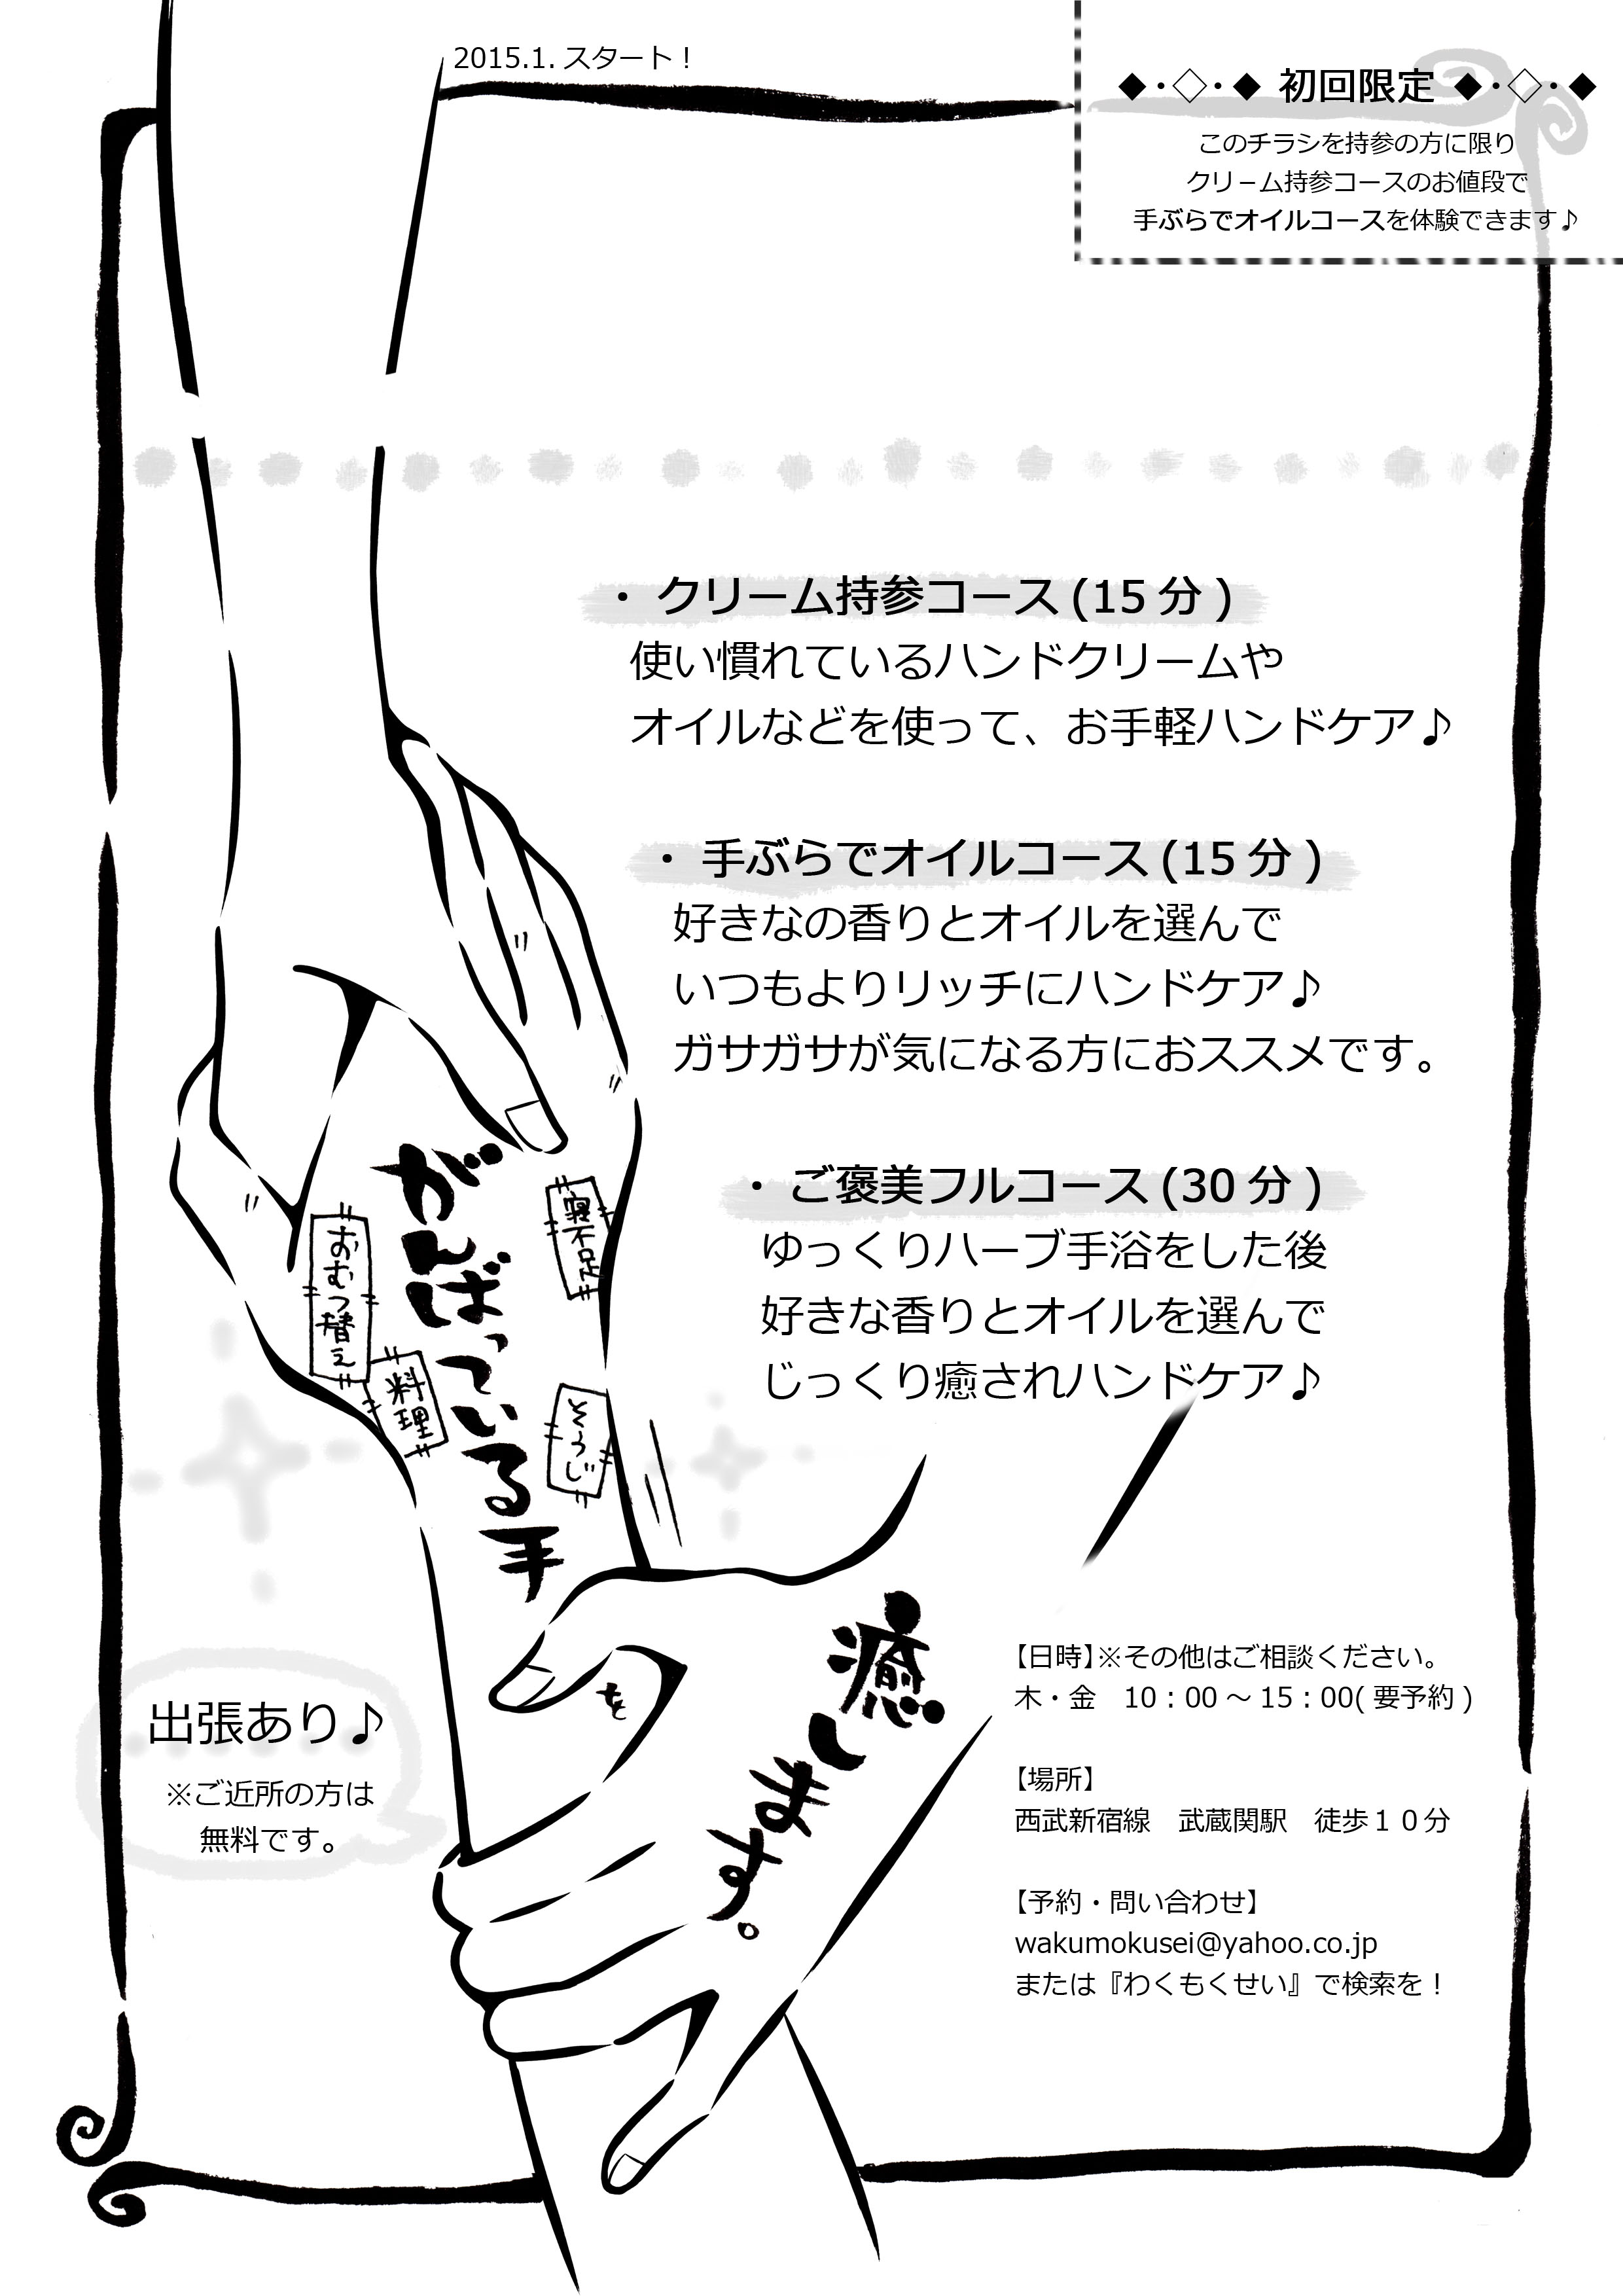 2015.1. スタート！
◆・◇・◆ 初回限定 ◆・◇・◆
このチラシを持参の方に限り
クリーム持参コースのお値段で
手ぶらでオイルコースを体験できます♪
・ クリーム持参コース (15 分 )
使い慣れているハンドクリームや
オイルなどを使って、お手軽ハンドケア♪
・ 手ぶらでオイルコース (15 分 )
好きなの香りとオイルを選んで
いつもよりリッチにハンドケア♪
ガサガサが気になる方におススメです。
・ ご褒美フルコース (30 分 )
ゆっくりハーブ手浴をした後
好きな香りとオイルを選んで
じっくり癒されハンドケア♪
がんばっている手
寝不足
おむつ替え
料理
そうじ
を
癒します。
出張あり♪
※ご近所の方は
無料です。
【日時】※その他はご相談ください。
木・金　10：00 ～ 15：00( 要予約 )
【場所】
西武新宿線　武蔵関駅　徒歩１０分
【予約・問い合わせ】
wakumokusei@yahoo.co.jp
または『わくもくせい』で検索を！